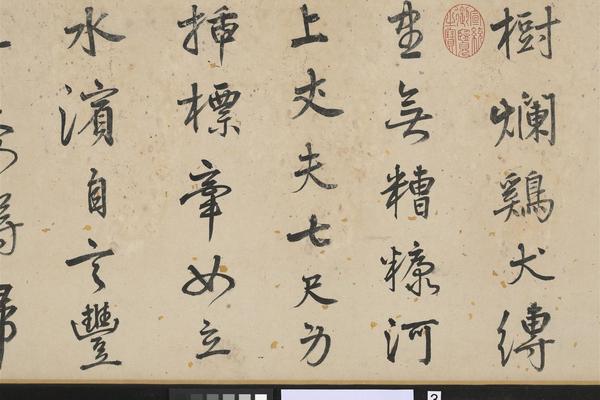 樹爛鷄犬縛
盡無糟糠河
上丈夫七尺身
插標牽女立
水濱自言豐